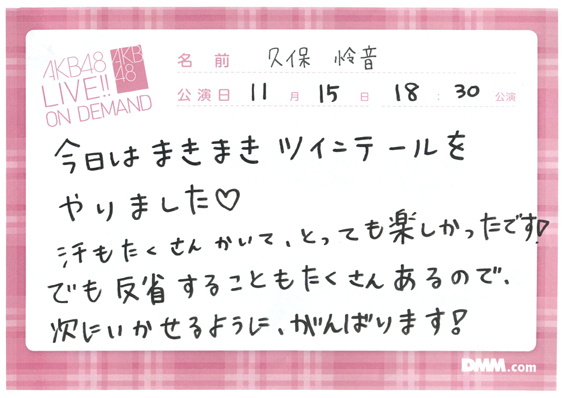 AKB48
LIVE!!
ON DEMAND
AKB
48
名前 久保 怜音
公演日 11月 15日 18:30 公演
今日は まきまき ツインテールを
やりました♡
汗もたくさんかいて、とっても楽しかったです!
でも反省することもたくさんあるので、
次にいかせるように、がんばります!
DMM.com